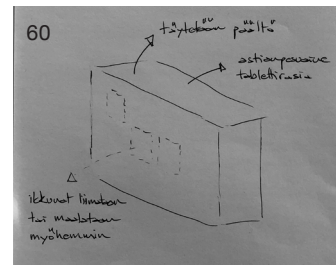 60
täytetään päältä
astianpesuaine
tablettirasia
ikkunat liimataan
tai maalataan
myöhemmin